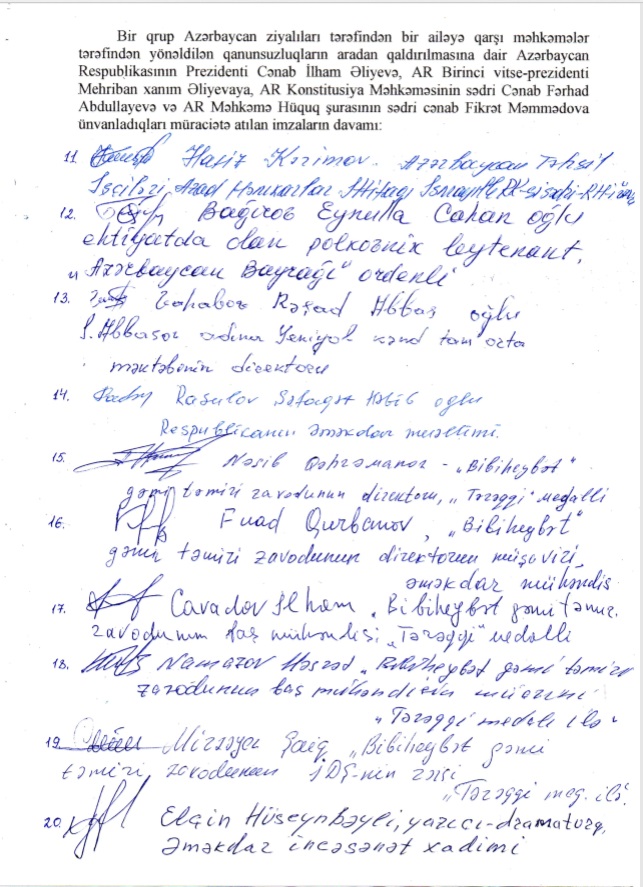 Bir qrup Azərbaycan ziyalıları tərəfindən bir ailəyə qarşı məhkəmələr
tərəfindən yönəldilən qanunsuzluqların aradan qaldırılmasına dair Azərbaycan
Respublikasının Prezidenti Cənab İlham Əliyevə, AR Birinci vitse-prezidenti
Mehriban xanım Əliyevaya, AR Konstitusiya Məhkəməsinin sədri Cənab Fərhad
Abdullayevə və AR Məhkəmə Hüquq şurasının sədri cənab Fikrət Məmmədova
ünvanladıqları müraciətə atılan imzaların davamı:
11. Hafiz Kərimov. Azərbaycan Təhsil
İşçiləri Azad Həmkarlar İttifaqı
12. Bağırov Eynulla Cahan oğlu
ehtiyatda olan polkovnik leytenant,
"Azərbaycan Bayrağı" ordenli
13. Rəşad Abbas oğlu
S. Abbasov adına Yeniyol kənd tam orta
məktəbinin direktoru
14. Rasulov Səfaqət Həbib oğlu
Respublikanın əməkdar müəllimi.
15. Nəsib Qəhrəmanov - "Bibiheybət"
gəmi təmiri zavodunun direktoru, "Tərəqqi" medallı
16. Fuad Qurbanov, "Bibiheybət"
gəmi təmiri zavodunun direktorun müşaviri,
əməkdar mühəndis
17. Cavadov İlham "Bibiheybət gəmi təmir.
zavodunun baş mühəndisi, "Tərəqqi" medallı
18. Namazov "Bibiheybət gəmi təmiri
zavodunun baş mühəndisin müavini
"Tərəqqi medalı ilə"
19. Mirzəyev Faiq "Bibiheybət gəmi
təmiri zavodunun İDS-nin rəisi
"Tərəqqi med. ilə.
20. Elçin Hüseynbəyli, yazıçı-dramaturq,
əməkdar incəsənət xadimi